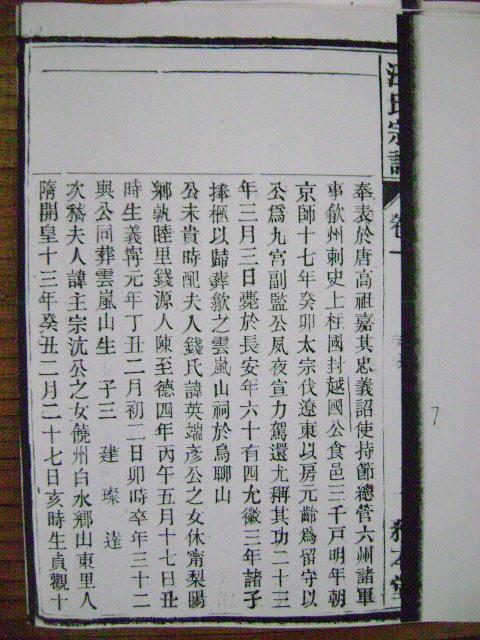 汪氏宗譜
卷一
奉表於唐高祖嘉其忠義詔使持節總管六州諸軍
事歙州刺史上柱國封越國公食邑三千戶明年朝
京師十七年癸卯太宗伐遼東以房元齡爲留守以
公爲九宮副監公夙夜宣力駕還尤稱其功二十三
年三月三日薨於長安年六十有四允徽三年諸子
捧櫬以歸葬歙之雲嵐山祠於烏聊山
公未貴時配夫人錢氏諱英端彥公之女休甯梨陽
鄉孰睦里錢源人陳至德四年丙午五月十七日丑
時生義甯元年丁丑二月初二日卯時卒年三十二
與公同葬雲嵐山生 子三 建 璨 逹
次嵇夫人諱主宗沇公之女饒州白水鄉山東里人
隋開皇十三年癸丑二月二十七日亥時生貞觀十
7